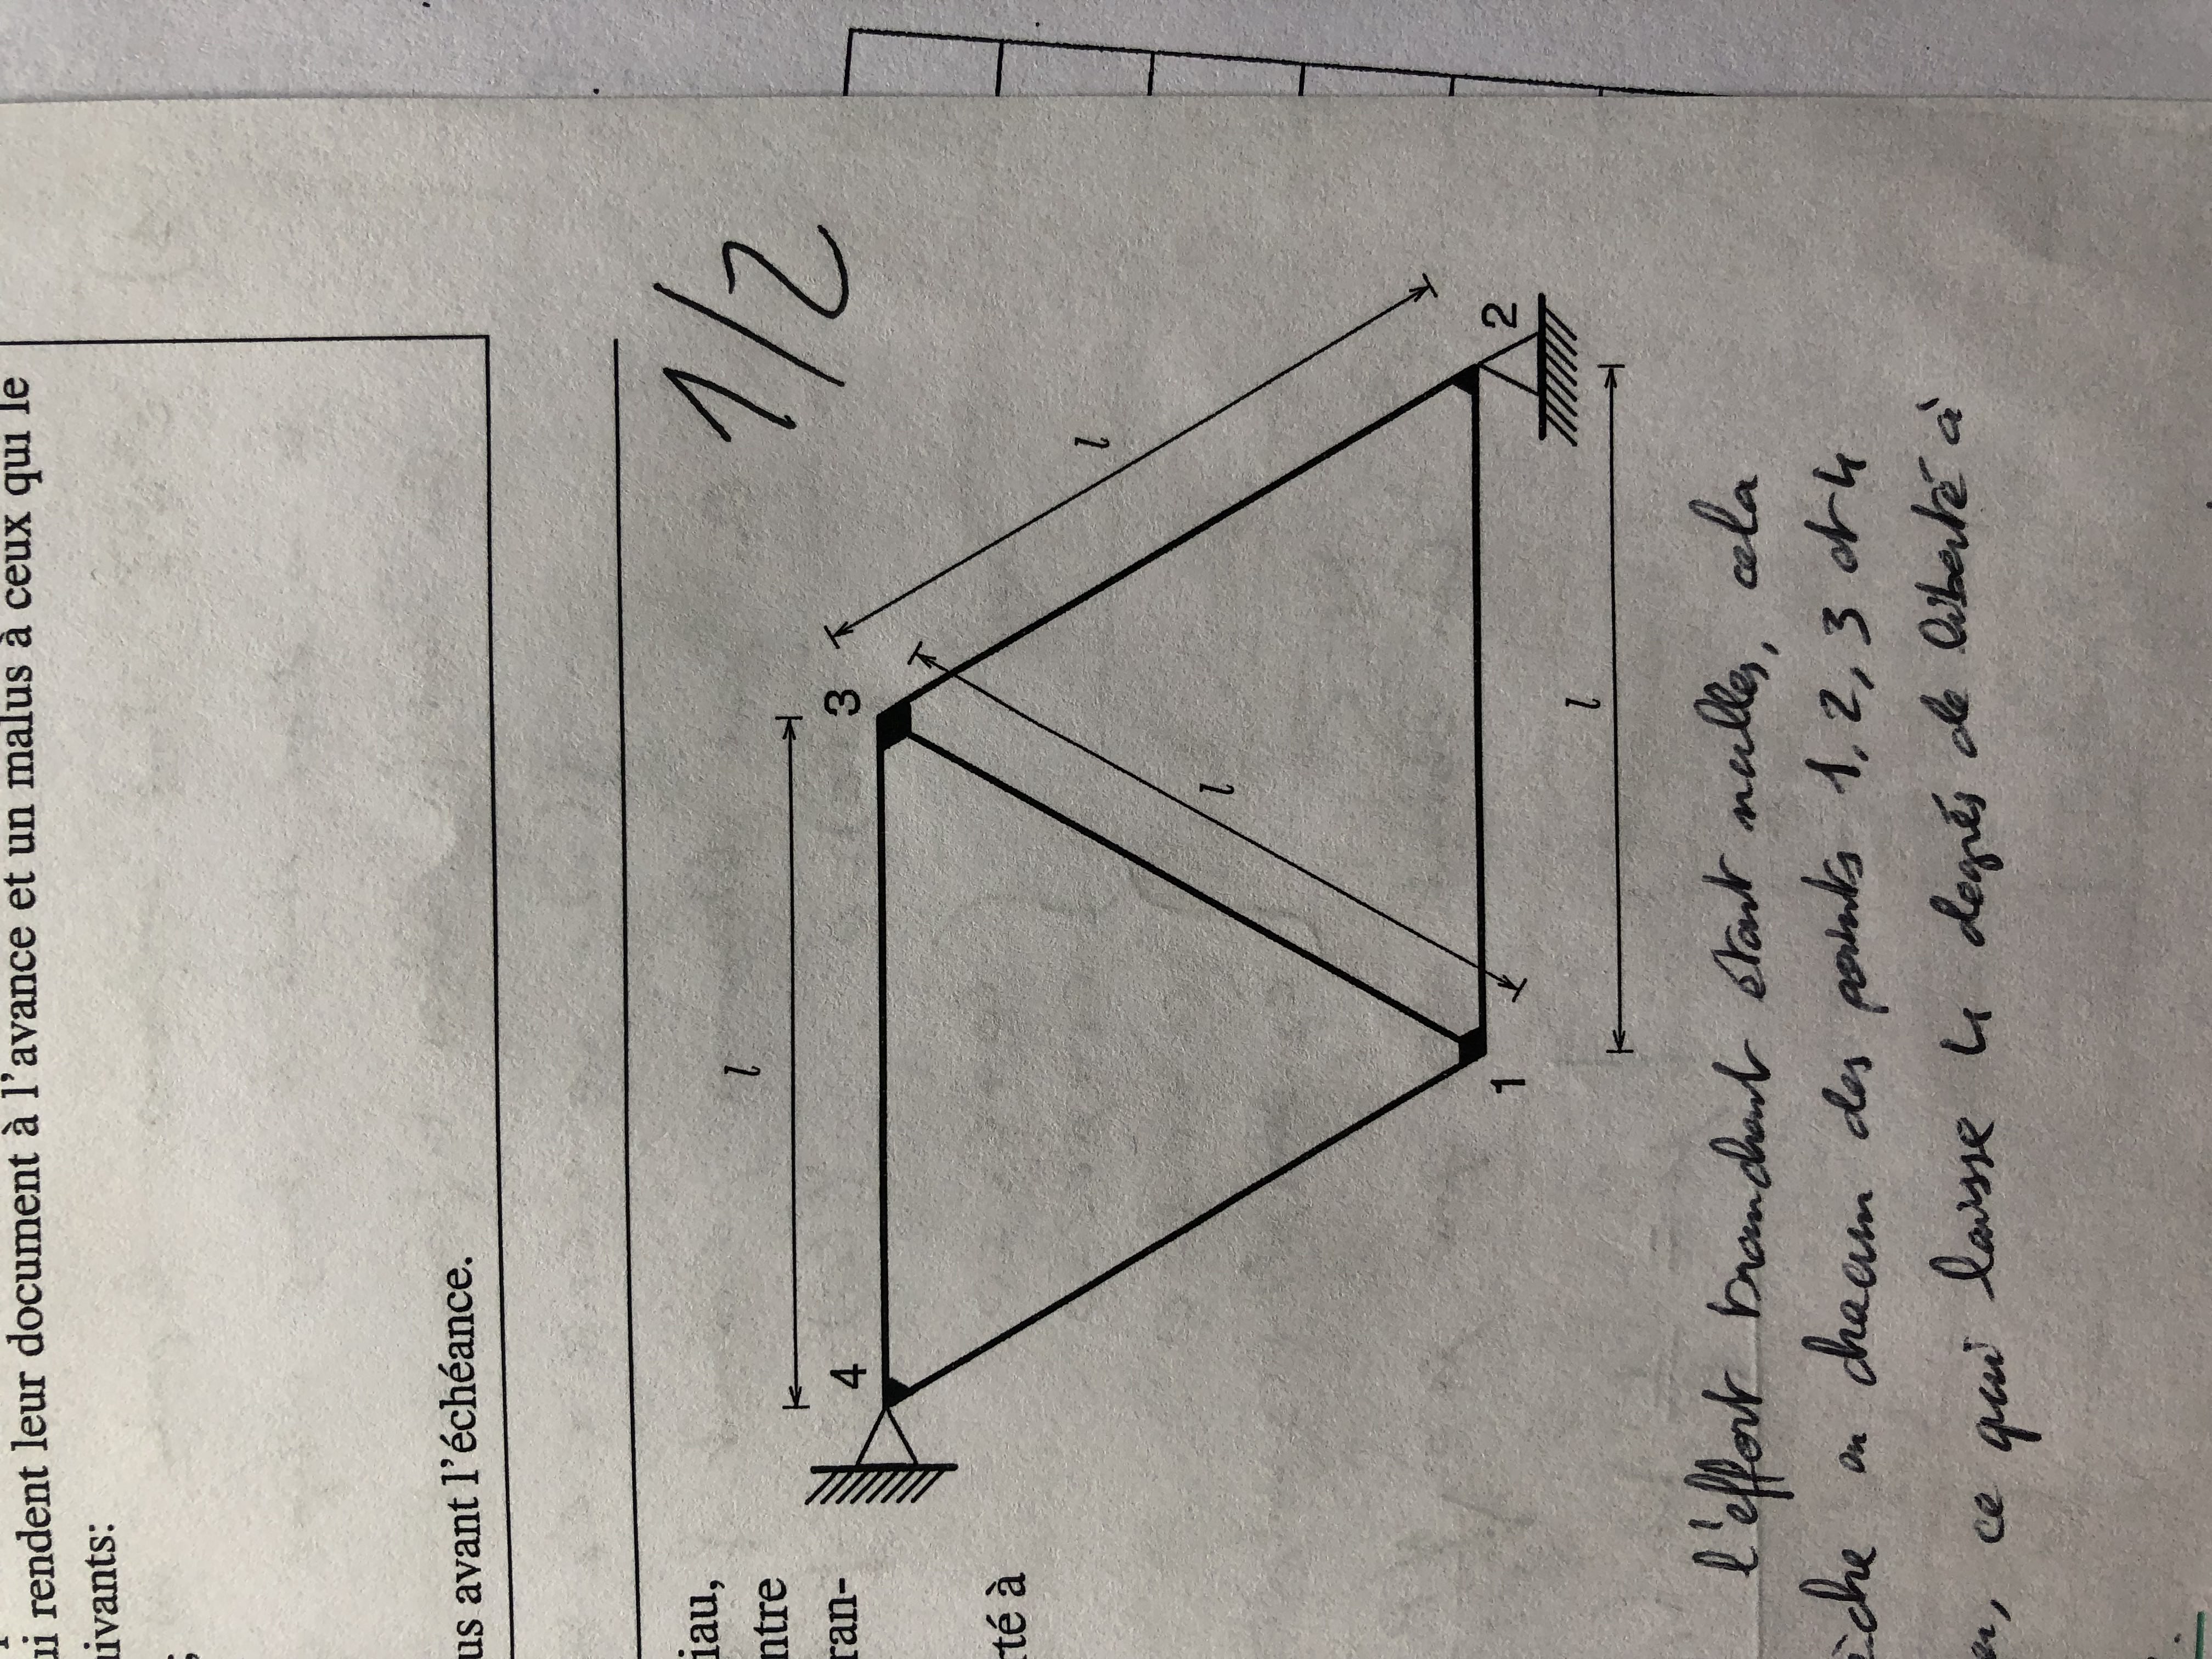 ui rendent leur document à l'avance et un malus à ceux qui le
uivants:
us avant l'échéance.
iau,
ntre
ran-
rté à
1/2
l
4
3
l
l
1
l
2
l'effort tranchant étant nulles, cela
iche en chacun des points 1, 2, 3 et 4
n, ce qui laisse 4 degrés de liberté à